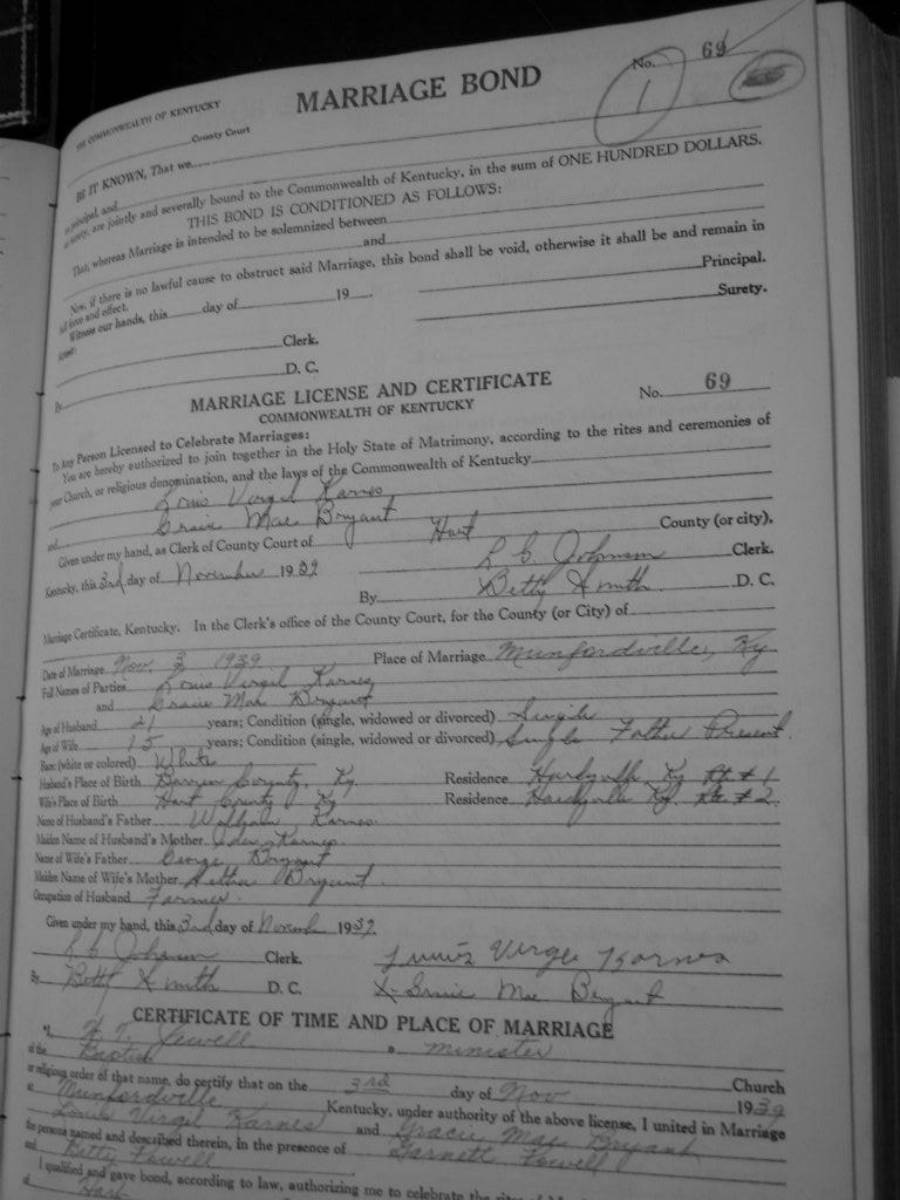 THE COMMONWEALTH OF KENTUCKY
MARRIAGE BOND
No. 69
1
County Court
BE IT KNOWN, That we
principal, and
surety, are jointly and severally bound to the Commonwealth of Kentucky, in the sum of ONE HUNDRED DOLLARS.
THIS BOND IS CONDITIONED AS FOLLOWS:
That, whereas Marriage is intended to be solemnized between
and
Now, if there is no lawful cause to obstruct said Marriage, this bond shall be void, otherwise it shall be and remain in
full force and effect.
Witness our hands, this day of 19
Principal.
Surety.
Attest:
Clerk.
By D. C.
MARRIAGE LICENSE AND CERTIFICATE
COMMONWEALTH OF KENTUCKY
No. 69
To Any Person Licensed to Celebrate Marriages:
You are hereby authorized to join together in the Holy State of Matrimony, according to the rites and ceremonies of
your Church, or religious denomination, and the laws of the Commonwealth of Kentucky
Louis Virgil Karnes
and Gracie Mae Bryant
Given under my hand, as Clerk of County Court of Hart County (or city),
Kentucky, this 3rd day of November 1939
Johnson Clerk.
By Betty Smith D. C.
Marriage Certificate, Kentucky. In the Clerk's office of the County Court, for the County (or City) of
Date of Marriage Nov. 3 1939 Place of Marriage Munfordville, Ky
Full Names of Parties Louis Virgil Karnes
and Gracie Mae Bryant
Age of Husband 21 years; Condition (single, widowed or divorced) Single
Age of Wife 15 years; Condition (single, widowed or divorced) Single Father Present
Race (white or colored) White
Husband's Place of Birth Barren County, Ky Residence Hardyville, Ky Rt # 1
Wife's Place of Birth Hart County, Ky Residence Hardyville Ky. Rt # 2
Name of Husband's Father Karnes
Maiden Name of Husband's Mother Karnes
Name of Wife's Father George Bryant
Maiden Name of Wife's Mother Bryant
Occupation of Husband Farmer
Given under my hand, this 3rd day of November 1939
Johnson Clerk. Virge Karnes
By Betty Smith D. C. X Gracie Mae Bryant
CERTIFICATE OF TIME AND PLACE OF MARRIAGE
I, Jewell a minister
of the Baptist Church
or religious order of that name, do certify that on the 3rd day of Nov 1939
at Munfordville Kentucky, under authority of the above license, I united in Marriage
Louis Virgil Karnes and Gracie Mae Bryant
the persons named and described therein, in the presence of Garnett
and Betty
I qualified and gave bond, according to law, authorizing me to celebrate the rites of
of Hart